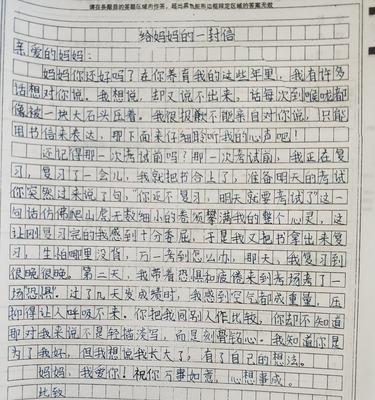 请在各题目的答题区域内作答，超出黑色矩形边框限定区域的答案无效
给妈妈的一封信
亲爱的妈妈：
妈妈你还好吗？在你养育我的这些年里，我有许多
话想对你说。我想说，却又说不出来，话每次到喉咙都
像被一块大石头压着。我很抱歉不能亲自对你说，只能
用书信来表达，那下面来仔细聆听我的心声吧！
还记得那一次考试前吗？那一次考试前，我正在复
习，复习了一会儿，我就把书合上了，准备明天的考试
你突然过来说了句，"你还不复习，明天就要考试了"这一
句话仿佛爬山虎无数细小的卷须攀满我的整个心灵，这
让刚复习完的我感到十分委屈，于是我又把书拿出来复
习，生怕哪里没背，万一考到怎么办，那天，我复习到
很晚很晚。第二天，我带着恐惧和疲倦来到考场考了一
场"恐惧"。过了几天发成绩时，我感到空气都成重量，压
抑得让人呼吸不来。你把我同别人作比较，你却不知道
那对我来说不是轻描淡写，而是刻骨铭心。我知道你是
为了我好，但我想说我长大了，有了自己的想法。
妈妈，我爱你！祝你万事如意，心想事成。
此致